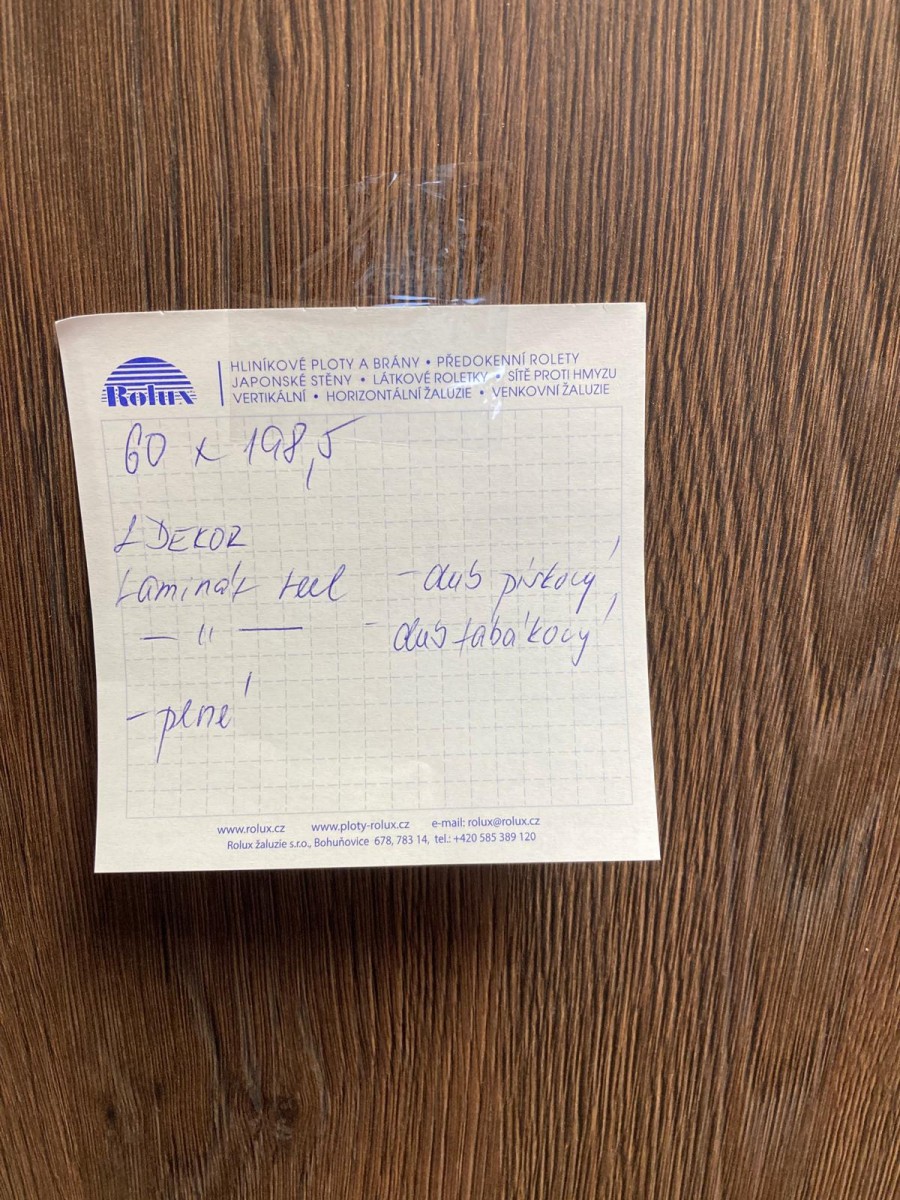 Rolux
HLINÍKOVÉ PLOTY A BRÁNY • PŘEDOKENNÍ ROLETY
JAPONSKÉ STĚNY • LÁTKOVÉ ROLETKY • SÍTĚ PROTI HMYZU
VERTIKÁLNÍ • HORIZONTÁLNÍ ŽALUZIE • VENKOVNÍ ŽALUZIE
60 x 198,5
DEKOR
Laminát - dub pískový
— " — - dub tabákový
- plné
www.rolux.cz www.ploty-rolux.cz e-mail: rolux@rolux.cz
Rolux žaluzie s.r.o., Bohuňovice 678, 783 14, tel.: +420 585 389 120